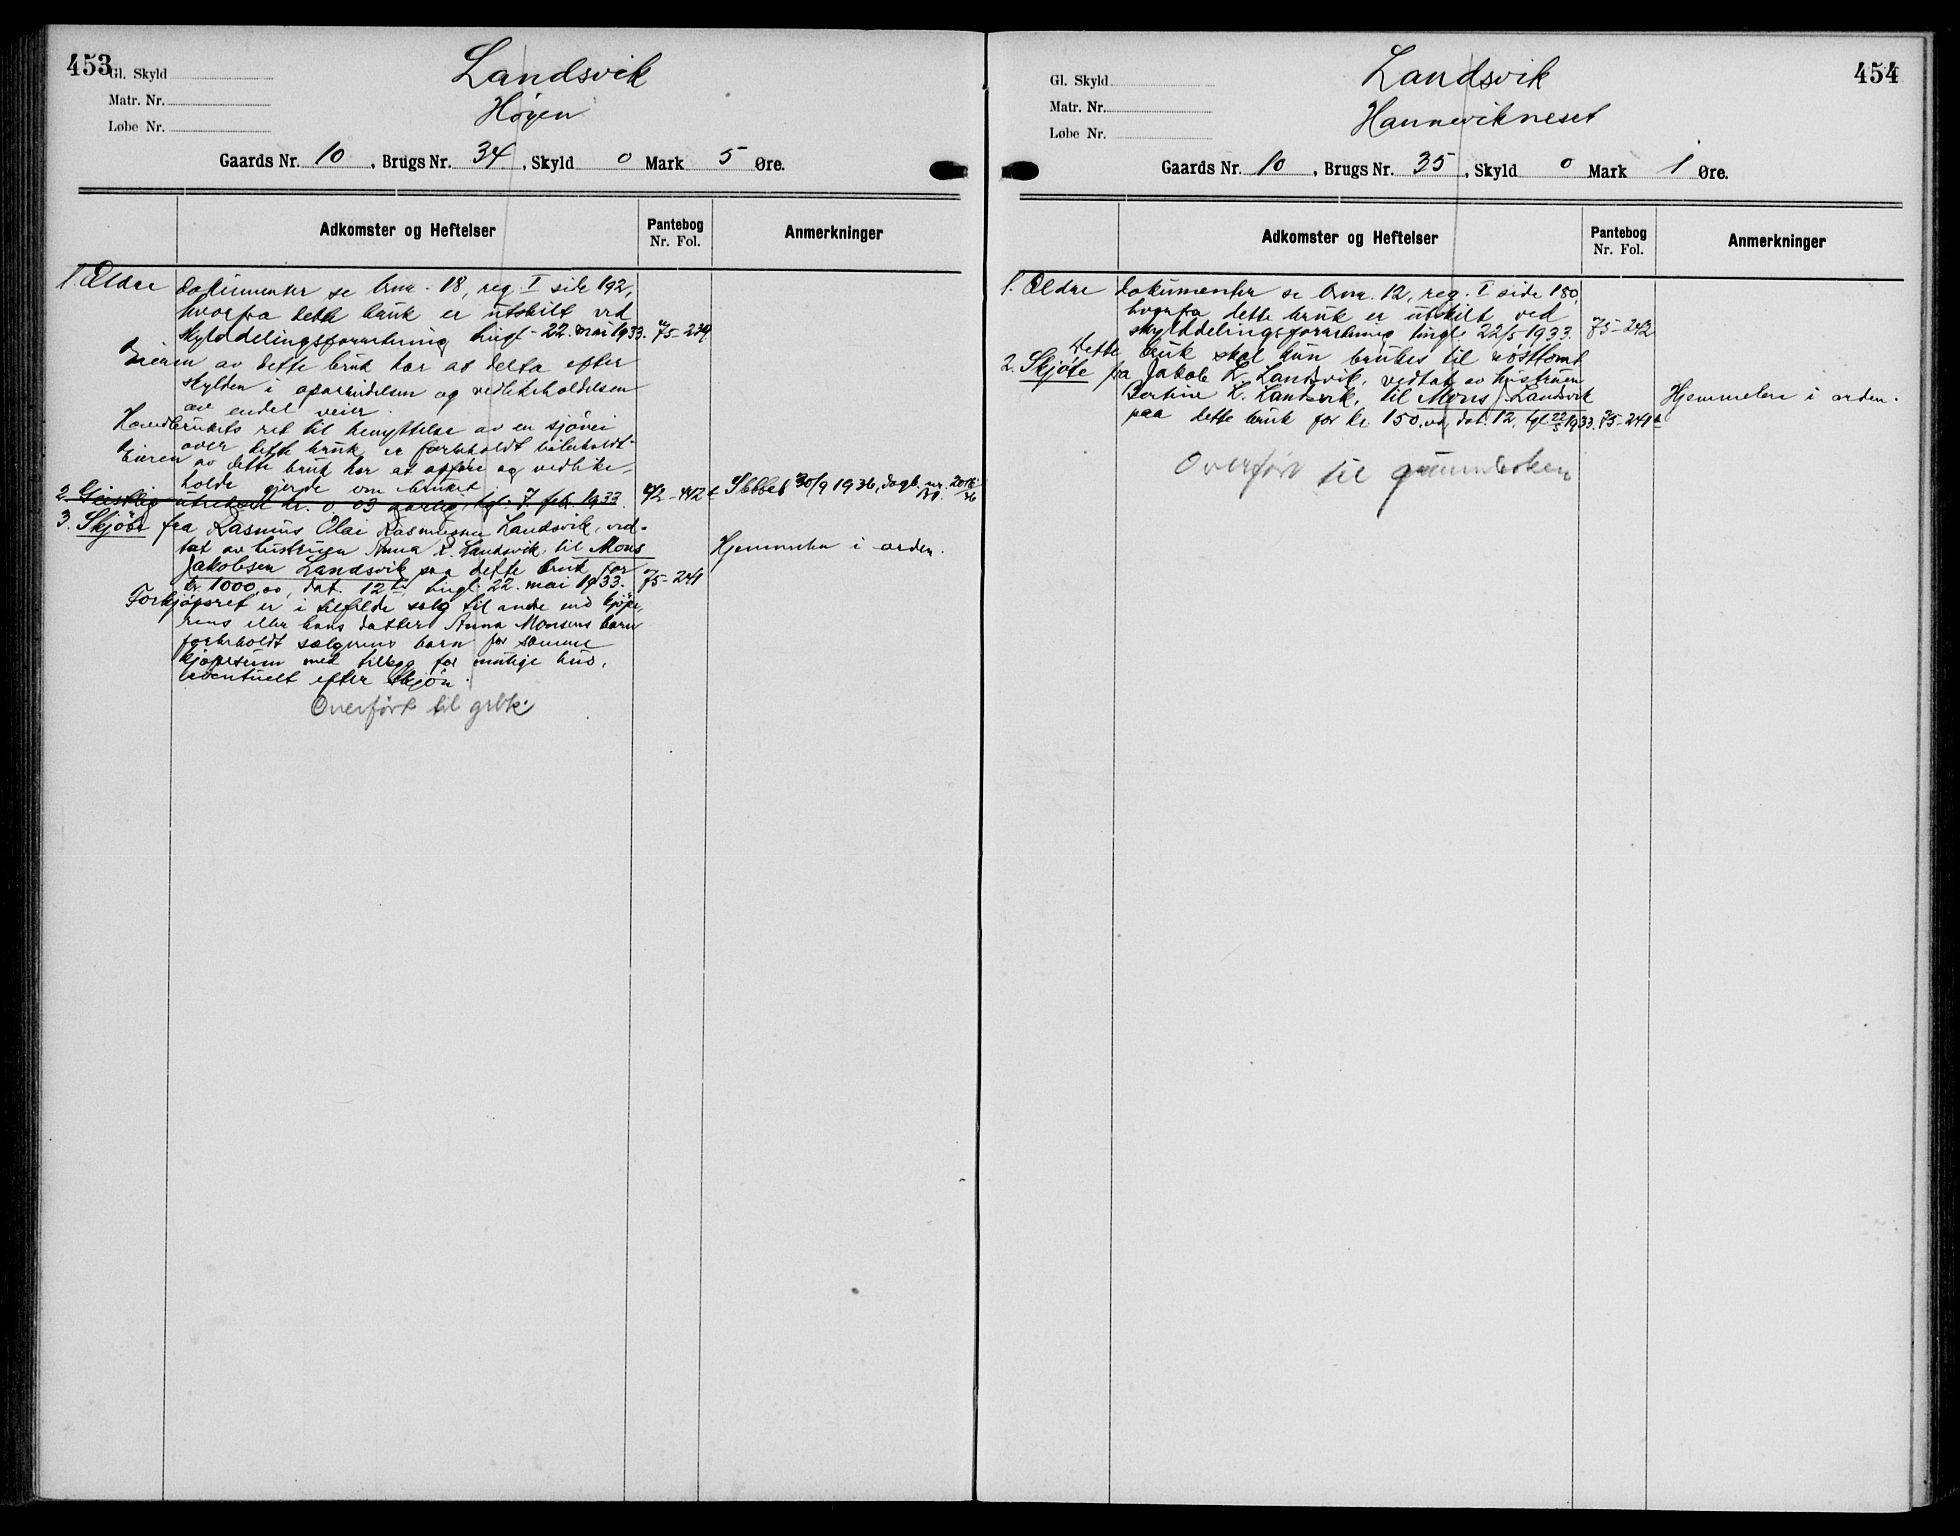 453
Gl. Skyld
Matr. Nr.
Løbe Nr.
Landsvik
Høgen
Gaards Nr. 10, Brugs Nr. 34, Skyld 0 Mark 5 Øre.
Adkomster og Heftelser
Pantebog
Nr. Fol.
Anmerkninger
1. Ældre dokumenter se bnr. 18, reg. I side 192,
hvorfra dette bruk er utskilt ved
skylddelingsforretning tingl. 22. mai 1933. 75-239
Eieren av dette bruk har at delta efter
skylden i oparbeidelsen og vedlikeholdelsen
av endel veier.
Hovedbrukets ret til benyttelse av en sjøvei
over dette bruk er forbeholdt
Eieren av dette bruk har at opføre og vedlike-
holde gjerde om bruket
2. Geistlig utredsel kr. 0.03 aarlig, tgl. 7 feb. 1933. 72-442 Slettet 30/9 1936, dagb. nr. 2018/36
3. Skjøte fra Rasmus Olai Rasmussen Landsvik, ved-
tat av hustruen Anna R. Landsvik, til Mons
Hjemmelen i orden.
Jakobsen Landsvik paa dette bruk for
kr. 1000,00, dat. 12 tingl. 22. mai 1933. 75-241
Forkjøpsret er i tilfelde salg til andre end kjøpe-
rens eller hans datter Anna Monsens barn
forbeholdt sælgerens barn for samme
kjøpesum med tillegg for mulige hus,
eventuelt efter skjøn.
Overført til grbk.
454
Gl. Skyld
Matr. Nr.
Løbe Nr.
Landsvik
Hannevikneset
Gaards Nr. 10, Brugs Nr. 35, Skyld 0 Mark 1 Øre.
Adkomster og Heftelser
Pantebog
Nr. Fol.
Anmerkninger
1. Ældre dokumenter se bnr. 12, reg. I side 180,
hvorfra dette bruk er utskilt ved
skylddelingsforretning tingl. 22/5 1933. 75-242
Dette bruk skal kun brukes til nøsttomt
2. Skjøte fra Jakob L. Landsvik, vedtat av hustruen
Bertine L. Landsvik, til Mons J. Landsvik
Hjemmelen i orden.
paa dette bruk for kr. 150.00, dat. 12, tgl 22/5 1933. 75-241
Overført til grunnboken